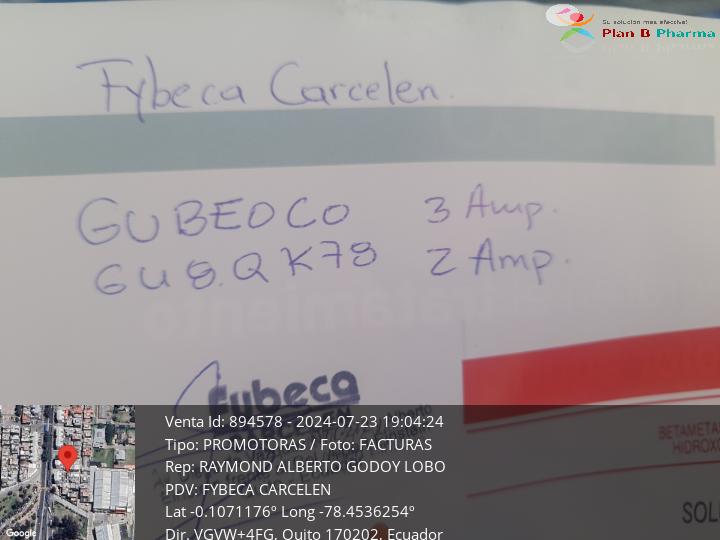 Su solución más efectiva!
Plan B Pharma
Fybeca Carcelen.
GUBEOCO 3 Amp.
GU8.QK78 2 Amp.
tratamiento
Fybeca
BETAMETA
HIDROX
SOL
Venta Id: 894578 - 2024-07-23 19:04:24
Tipo: PROMOTORAS / Foto: FACTURAS
Rep: RAYMOND ALBERTO GODOY LOBO
PDV: FYBECA CARCELEN
Lat -0.1071176º Long -78.4536254º
Dir. VGVW+4FG, Quito 170202, Ecuador
Google